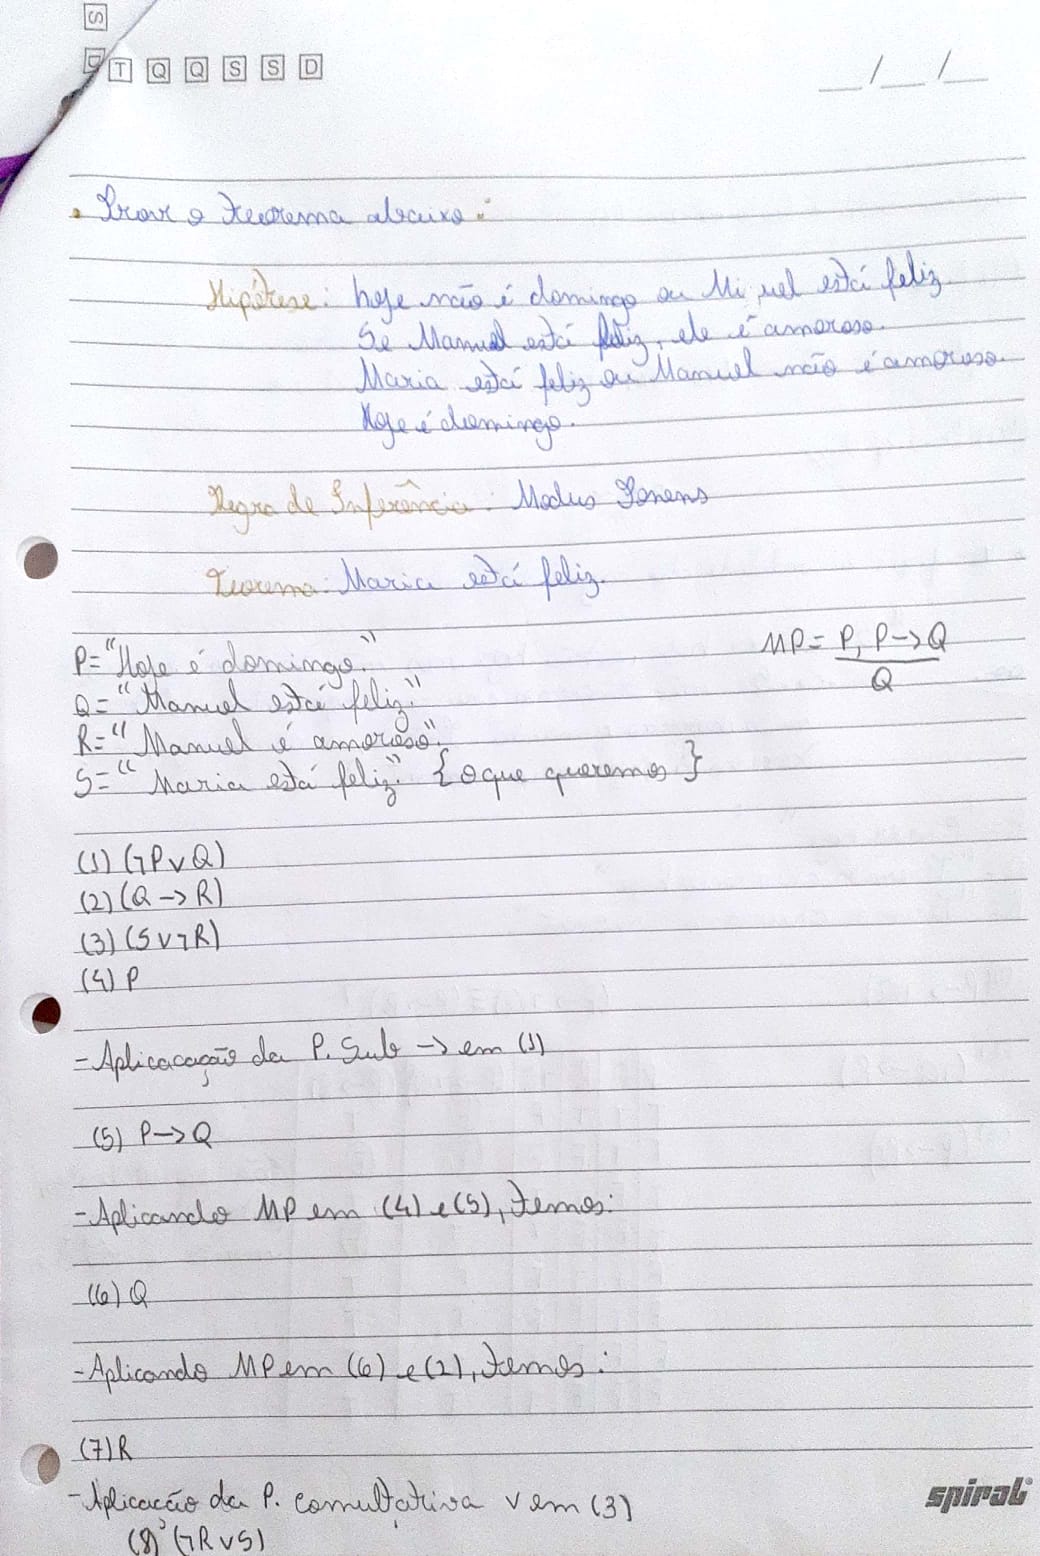 S
D T Q Q S S D
__/__/__
• Prove o teorema abaixo:
Hipótese: hoje não é domingo ou Mi uel está feliz.
Se Manuel está feliz, ele é amoroso.
Maria está feliz ou Manuel não é amoroso.
Hoje é domingo.
Regra de Inferência: Modus Ponens
Teorema: Maria está feliz.
P= "Hoje é domingo."
MP= P, P→Q
Q
Q= "Manuel está feliz."
R= "Manuel é amoroso".
S= "Maria está feliz." {o que queremos}
(1) (¬P∨Q)
(2) (Q→R)
(3) (S∨¬R)
(4) P
- Aplicacação da P. Sub → em (1)
(5) P→Q
- Aplicando MP em (4) e (5), temos:
(6) Q
- Aplicando MP em (6) e (2), temos:
(7) R
- Aplicação da P. comultativa ∨ em (3)
(8) (¬R∨S)
spiral